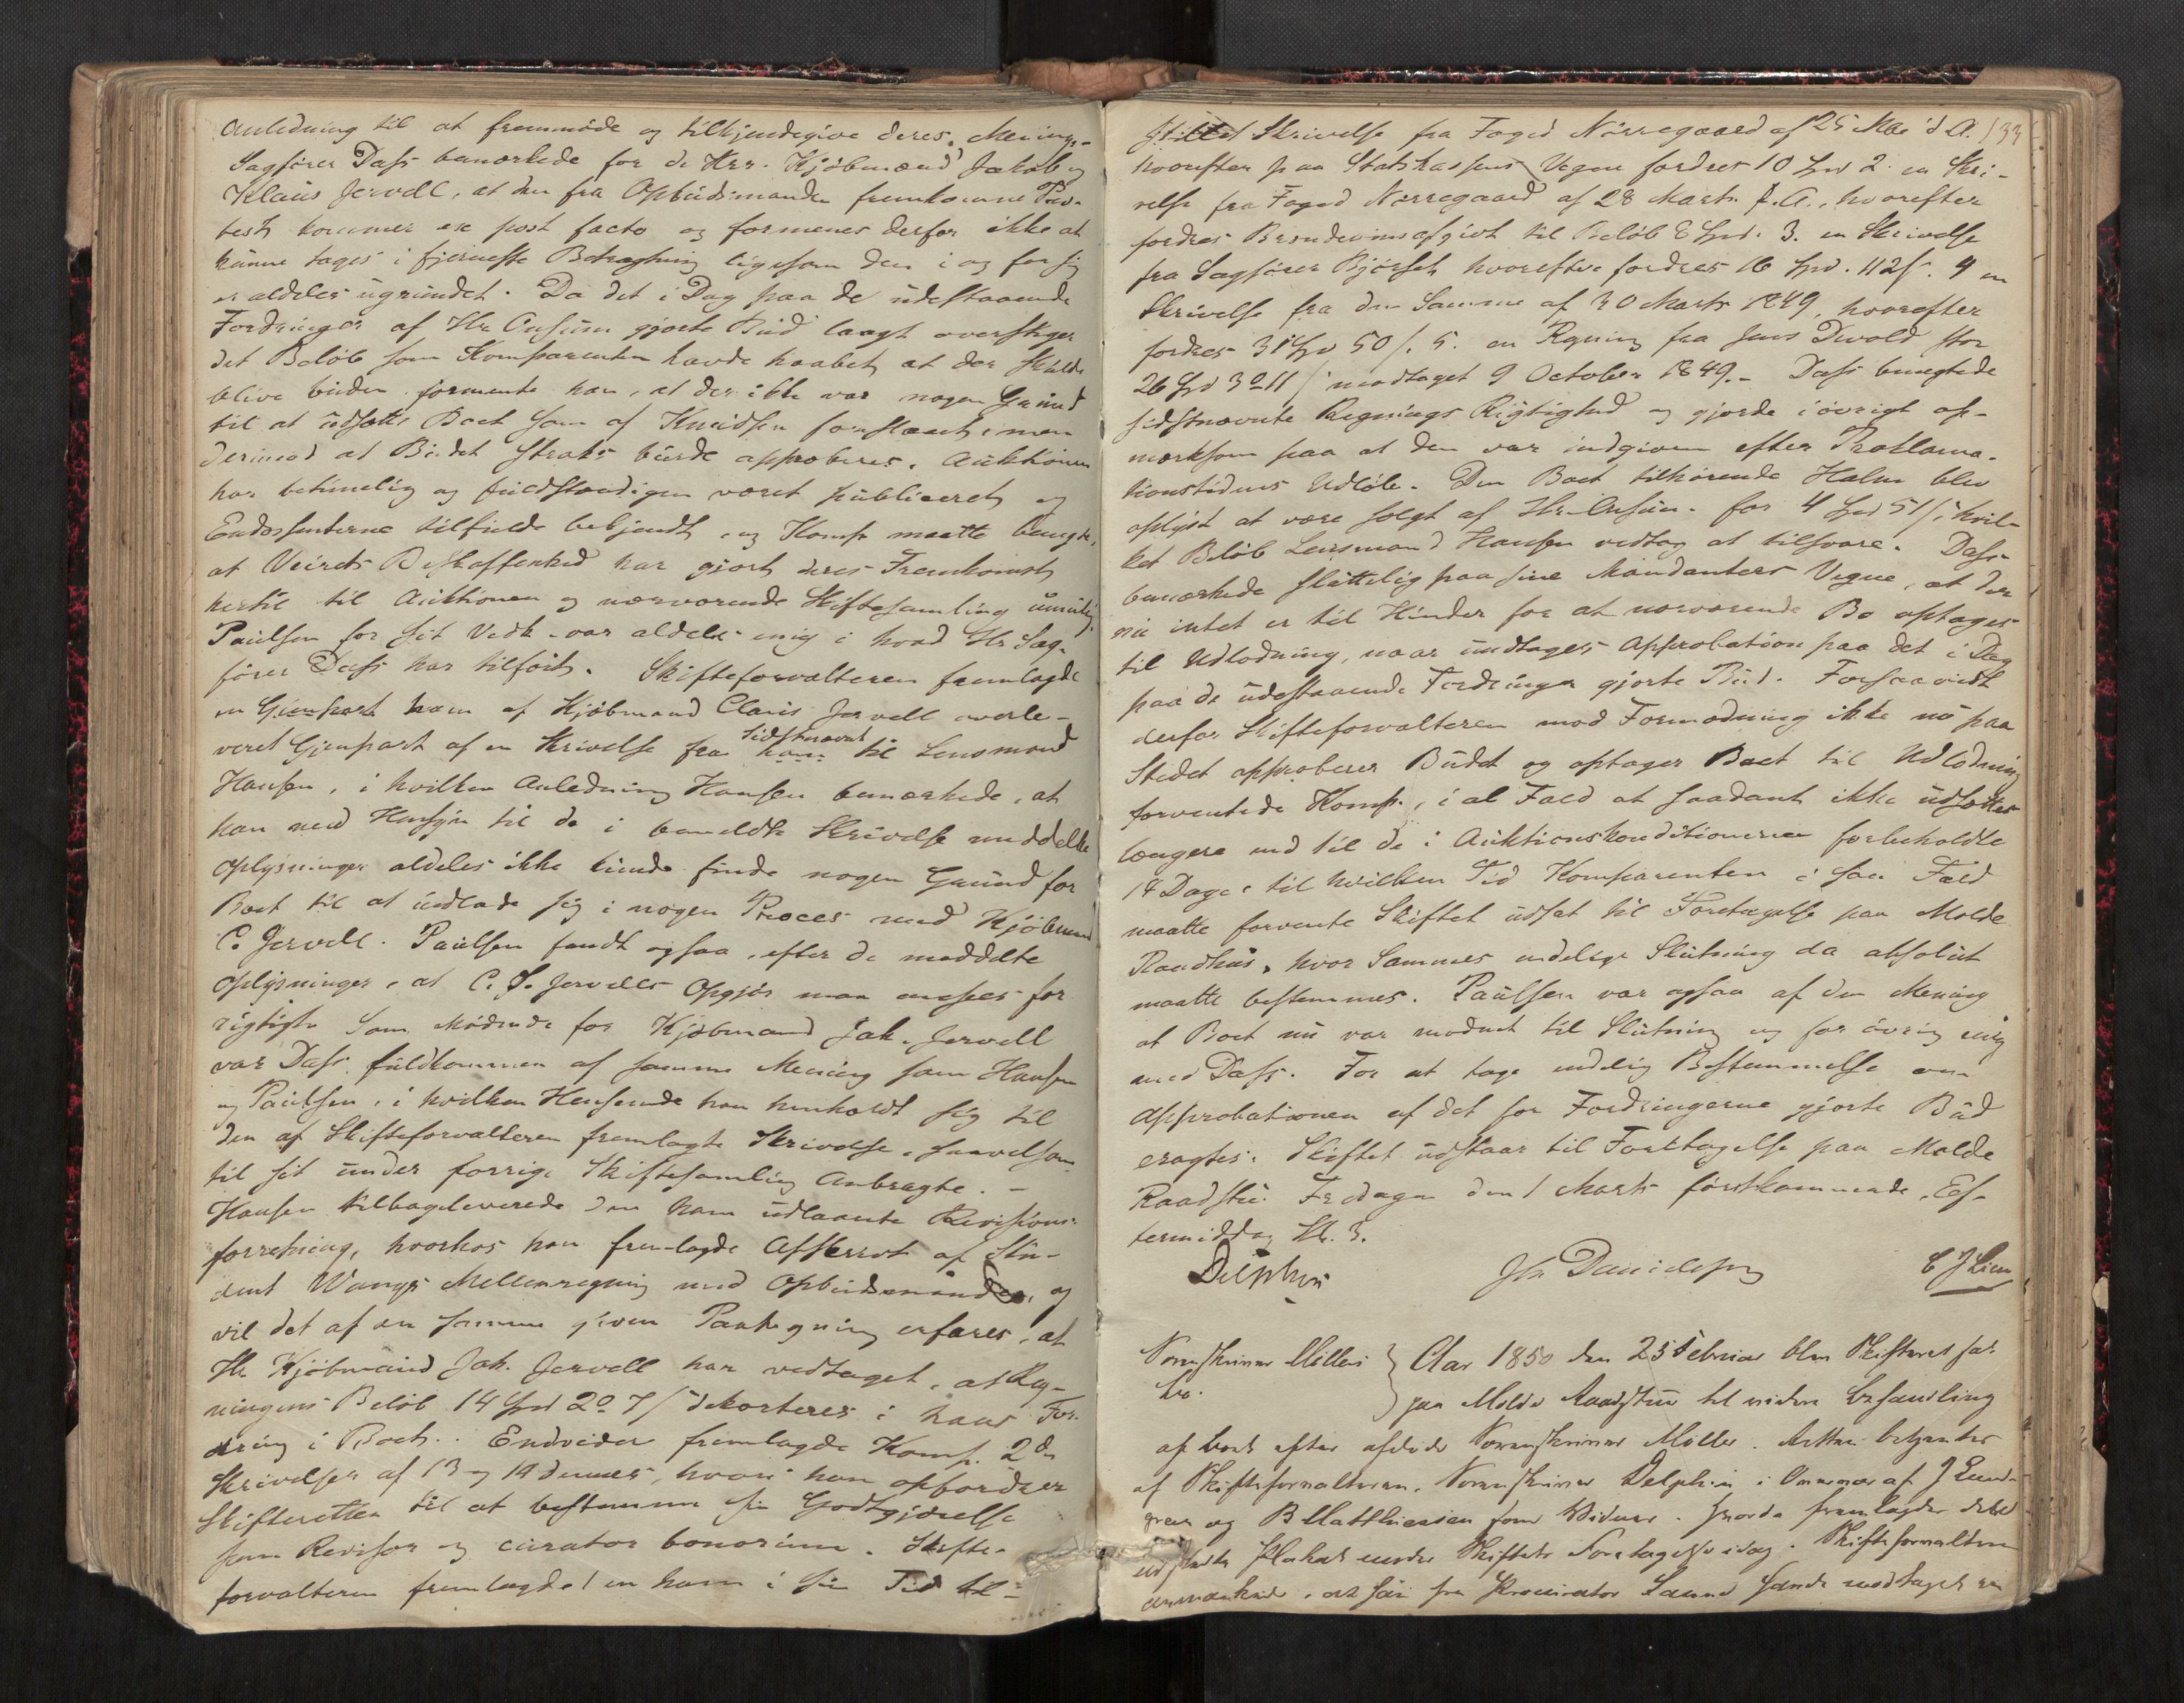 Anledning til at fremmøde og tilkjendegive deres Mening.-
Sagfører Dass bemærkede for de Hrr. Kjøbmænd Jakob og
Klaus Jervell, at den fra Opbudsmanden fremkomne Pro-
test kommer ex post facto og formenes derfor ikke at
kunne tages i fjerneste Betragtning ligesom den i og for sig
er aldeles ugrundet. Da det i Dag paa de udestaaende
Fordringer af Hr. Ansum gjorte Bud langt overstiger
det Beløb som Komparenten havde haabet at der skulde
blive buden formente han, at der ikke var nogen Grund
til at udsætte Boet som af Knudsen foreslaaet, men
derimod at Budet straks burde approberes. Auktionen
har betimelig og fuldstændigen været publiceret og
Endossenterne tilfulde bekjendt, og Komp. maatte benegte,
at Veirets Beskaffenhed har gjort deres Fremkomst
hertil til Auktionen og nærværende Skiftesamling umulig.
Paulsen for sit Vedk. var aldeles enig i hvad Hr. Sag-
fører Dass har tilført. Skifteforvalteren fremlagde
en Gjenpart ham af Kjøbmand Claus Jervell overle-
veret Gjenpart af en Skrivelse fra sidstnævnte til Lensmand
Hansen, i hvilken Anledning Hansen bemærkede, at
han med Hensyn til de i bemeldte Skrivelse meddelte
Oplysninger aldeles ikke kunde finde nogen Grund for
Boet til at indlade sig i nogen Proces med Kjøbmand
C. Jervell. Paulsen fandt ogsaa, efter de meddelte
Oplysninger, at C. J. Jervells Opgjør maa ansees for
rigtigt. Som Mødende for Kjøbmand Jak. Jervell
var Dass fuldkommen af samme Mening som Hansen
og Paulsen, i hvilken Henseende han henholdt sig til
den af Skifteforvalteren fremlagte Skrivelse, saavelsom
til sit under forrige Skiftesamling Anbragte. -
Hansen tilbageleverede den ham udlaante Revisions-
forretning, hvorhos han fremlagde Afskrivt af Stu-
dent Wangs Mellemregning med Opbudsmanden, og
vil det af en samme given Paategning erfares, at
Hr. Kjøbmand Jak. Jervell har vedtaget, at Reg-
ningens Beløb 14 Spd 2 o 7 s dekorteres i hans For-
dring i Boet. Endvider fremlagde Komp. 2de
Skrivelser af 13 og 14 dennes, hvori han opfordrer
Skifteretten til at bestemme sin Godtgjørelse
som Revisor og curator bonorum. Skifte-
forvalteren fremlagde 1 en ham i sin Tid til-
133
stillet Skrivelse fra Foged Nørregaard af 25 d. A.
hvorefter paa Statskassens Vegne fordres 10 Spd 2. en Skri-
velse fra Foged Nørregaard af 28 Marts f. A., hvorefter
fordres Brændevinsafgivt til Beløb 8 Spd. 3. en Skrivelse
fra Sagfører Bjørset hvorefter fordres 16 Spd. 112 s. 4 en
Skrivelse fra den Samme af 30 Marts 1849, hvorefter
fordres 31 Spd 50 s. 5. en Regning fra Jens Devold stor
26 Spd 3 o 11 s modtaget 9 October 1849.- Dass benegtede
sidstnævnte Regnings Rigtighed og gjorde i øvrigt op-
mærksom paa at den var indgiven efter Proklama-
tionstidens Udløb. Den Boet tilhørende Halm blev
oplyst at være solgt af Hr. Ansum for 4 Spd 51 s, hvil-
ket Beløb Lensmand Hansen vedtog at tilsvare. Dass
bemærkede sluttelig paa sine Mandanters Vegne, at der
nu intet er til Hinder for at nærværende Bo optages
til Udlodning, naar undtages Approbation paa det i Dag
paa de udestaaende Fordringer gjorte Bud. Forsaavidt
derfor Skifteforvalteren mod Formodning ikke nu paa
Stedet approberer Budet og optager Boet til Udlodning
forventede Komp., i al Fald at saadant ikke udsættes
længere end til de i Auktionskonditionerne forbeholdte
14 Dage, til hvilken Tid Komparenten i saa Fald
maatte forvente Skiftet udsat til Foretagelse paa Molde
Raadhus, hvor Sammes endelige Slutning da absolut
maatte bestemmes. Paulsen var ogsaa af den Mening
at Boet nu var modent til Slutning og for øvrig enig
med Dass. For at tage endelig Bestemmelse om
Approbationen af det for Fordringerne gjorte Bud
eragtes: Skiftet udstaar til Foretagelse paa Molde
Raadstue Fredagen den 1 Marts førstkommende, Ef-
termiddag Kl. 3.
Delphin Danielsen C J Lien
Sorenskriver Müllers
Bo.
Aar 1850 den 25 Februar blev Skifteret sat
paa Molde Raadstue til videre Behandling
af Boet efter afdøde Sorenskriver Müller. Retten betjentes
af Skifteforvalteren, Sorenskriver Delphin i Overvær af J Lund-
green og B Matthiesen som Vidner. Hvorda fremlagdes
udstedte Plakat under Skiftets Foretagelse idag. Skifteforvalteren
anmærkede, at han fra Procurator Lamnd havde modtaget en